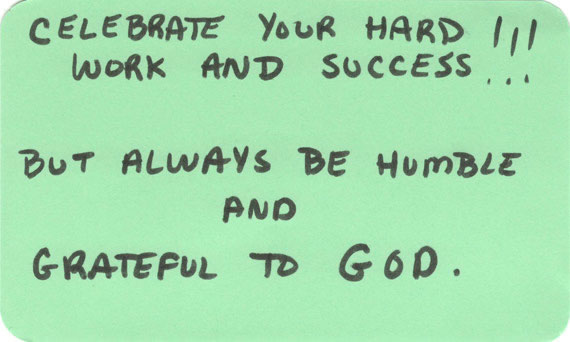 CELEBRATE YOUR HARD
WORK AND SUCCESS!!!
BUT ALWAYS BE HUMBLE
AND
GRATEFUL TO GOD.